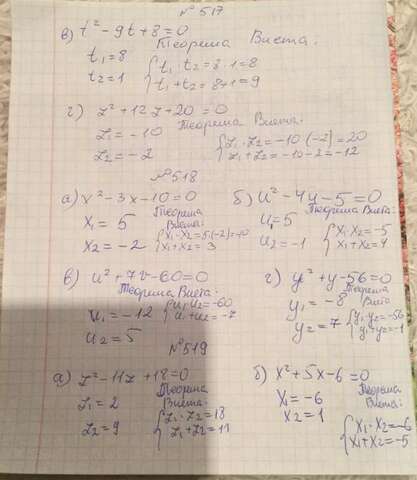 №517
в) t² - 9t + 8 = 0
Теорема Виета:
t₁ = 8
t₂ = 1
{ t₁ · t₂ = 8 · 1 = 8
t₁ + t₂ = 8+1 = 9
г) z² + 12z + 20 = 0
Теорема Виета:
z₁ = -10
z₂ = -2
{ z₁ · z₂ = -10 · (-2) = 20
z₁ + z₂ = -10 - 2 = -12
№518
а) x² - 3x - 10 = 0
Теорема Виета:
x₁ = 5
x₂ = -2
{ x₁ · x₂ = 5·(-2) = -10
x₁ + x₂ = 3
б) u² - 4u - 5 = 0
Теорема Виета:
u₁ = 5
u₂ = -1
{ x₁ · x₂ = -5
x₁ + x₂ = 4
в) u² + 7v - 60 = 0
Теорема Виета:
u₁ = -12
u₂ = 5
{ u₁ · u₂ = -60
u₁ + u₂ = -7
г) y² + y - 56 = 0
Теорема Виета
y₁ = -8
y₂ = 7
{ y₁ · y₂ = -56
y₁ + y₂ = -1
№519
а) z² - 11z + 18 = 0
Теорема Виета:
z₁ = 2
z₂ = 9
{ z₁ · z₂ = 18
z₁ + z₂ = 11
б) x² + 5x - 6 = 0
Теорема Виета:
x₁ = -6
x₂ = 1
{ x₁ · x₂ = -6
x₁ + x₂ = -5